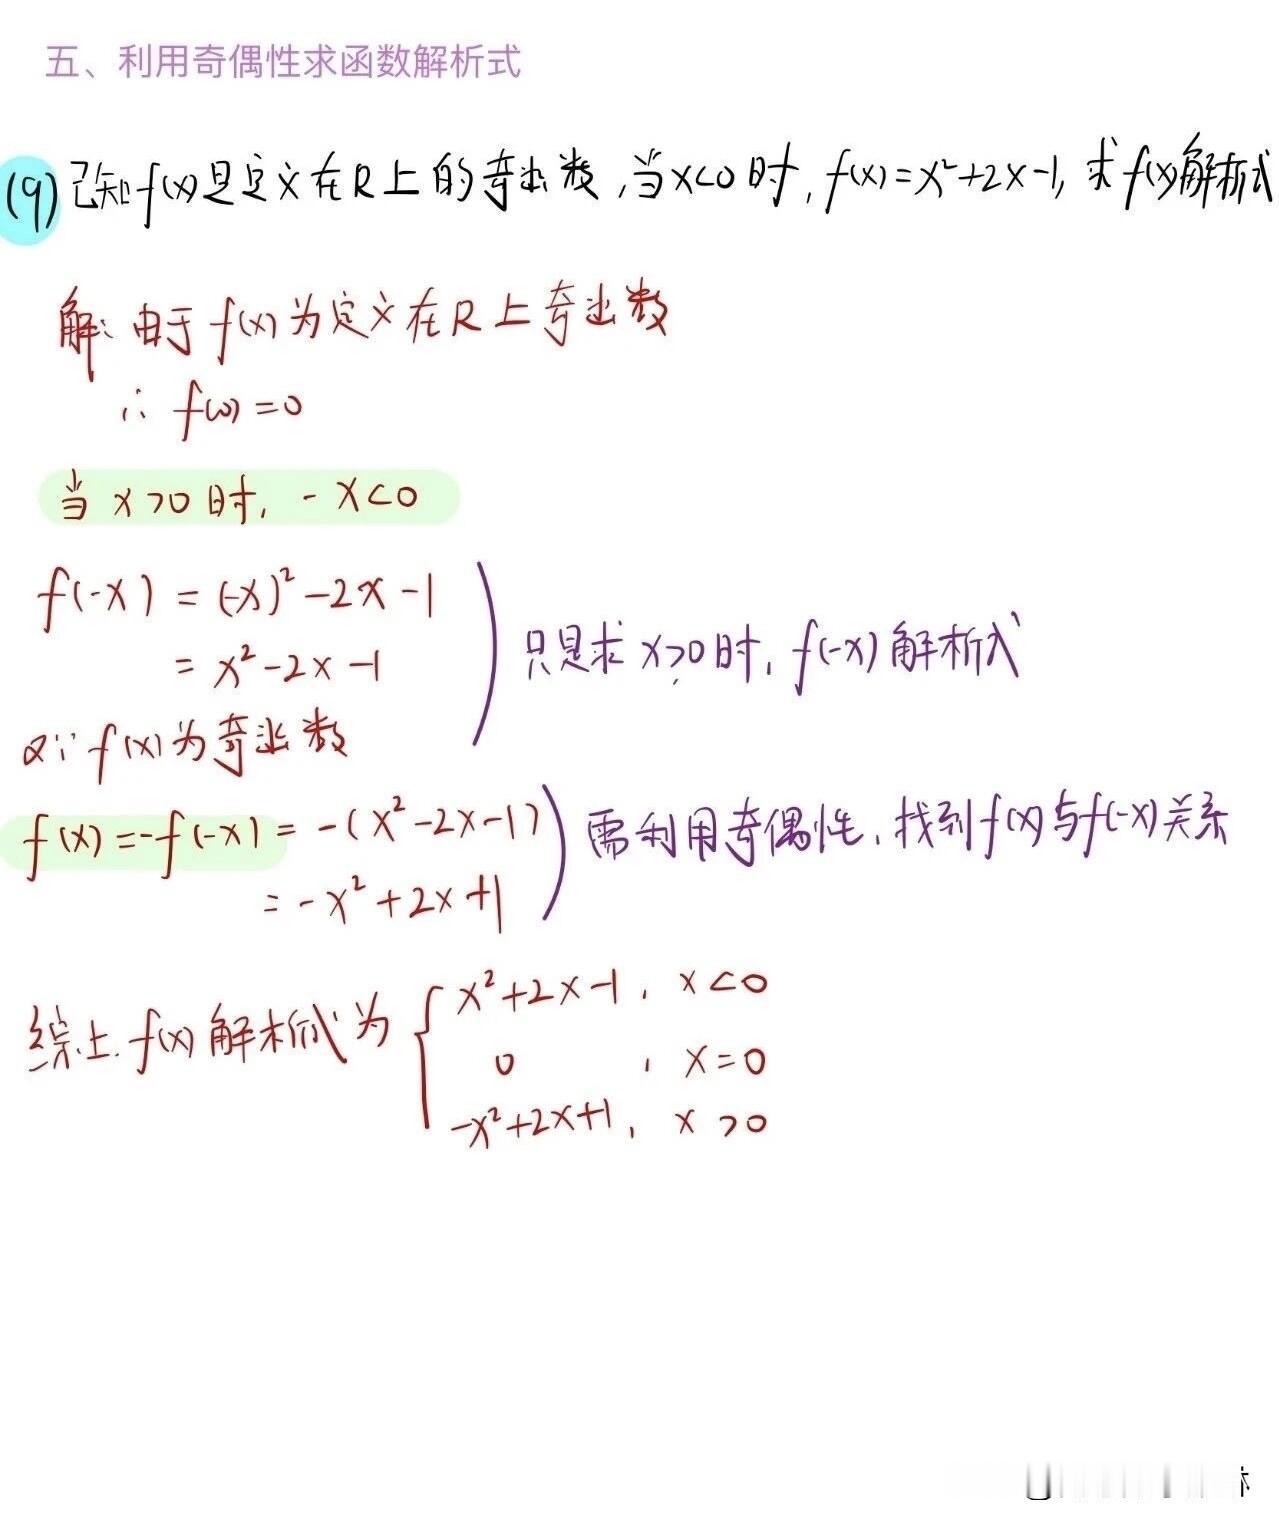 五、利用奇偶性求函数解析式
(9) 已知f(x)是定义在R上的奇函数,当x<0时,f(x)=x²+2x-1,求f(x)解析式
解:由于f(x)为定义在R上奇函数
∴ f(0)=0
当 x>0 时, -x<0
f(-x) = (-x)²-2x-1
= x²-2x-1
只是求 x>0时, f(-x) 解析式
又∵f(x)为奇函数
f(x)=-f(-x) = -(x²-2x-1)
= -x²+2x+1
需利用奇偶性,找到f(x)与f(-x)关系
综上.f(x)解析式为 { x²+2x-1, x<0
0 , x=0
-x²+2x+1, x>0